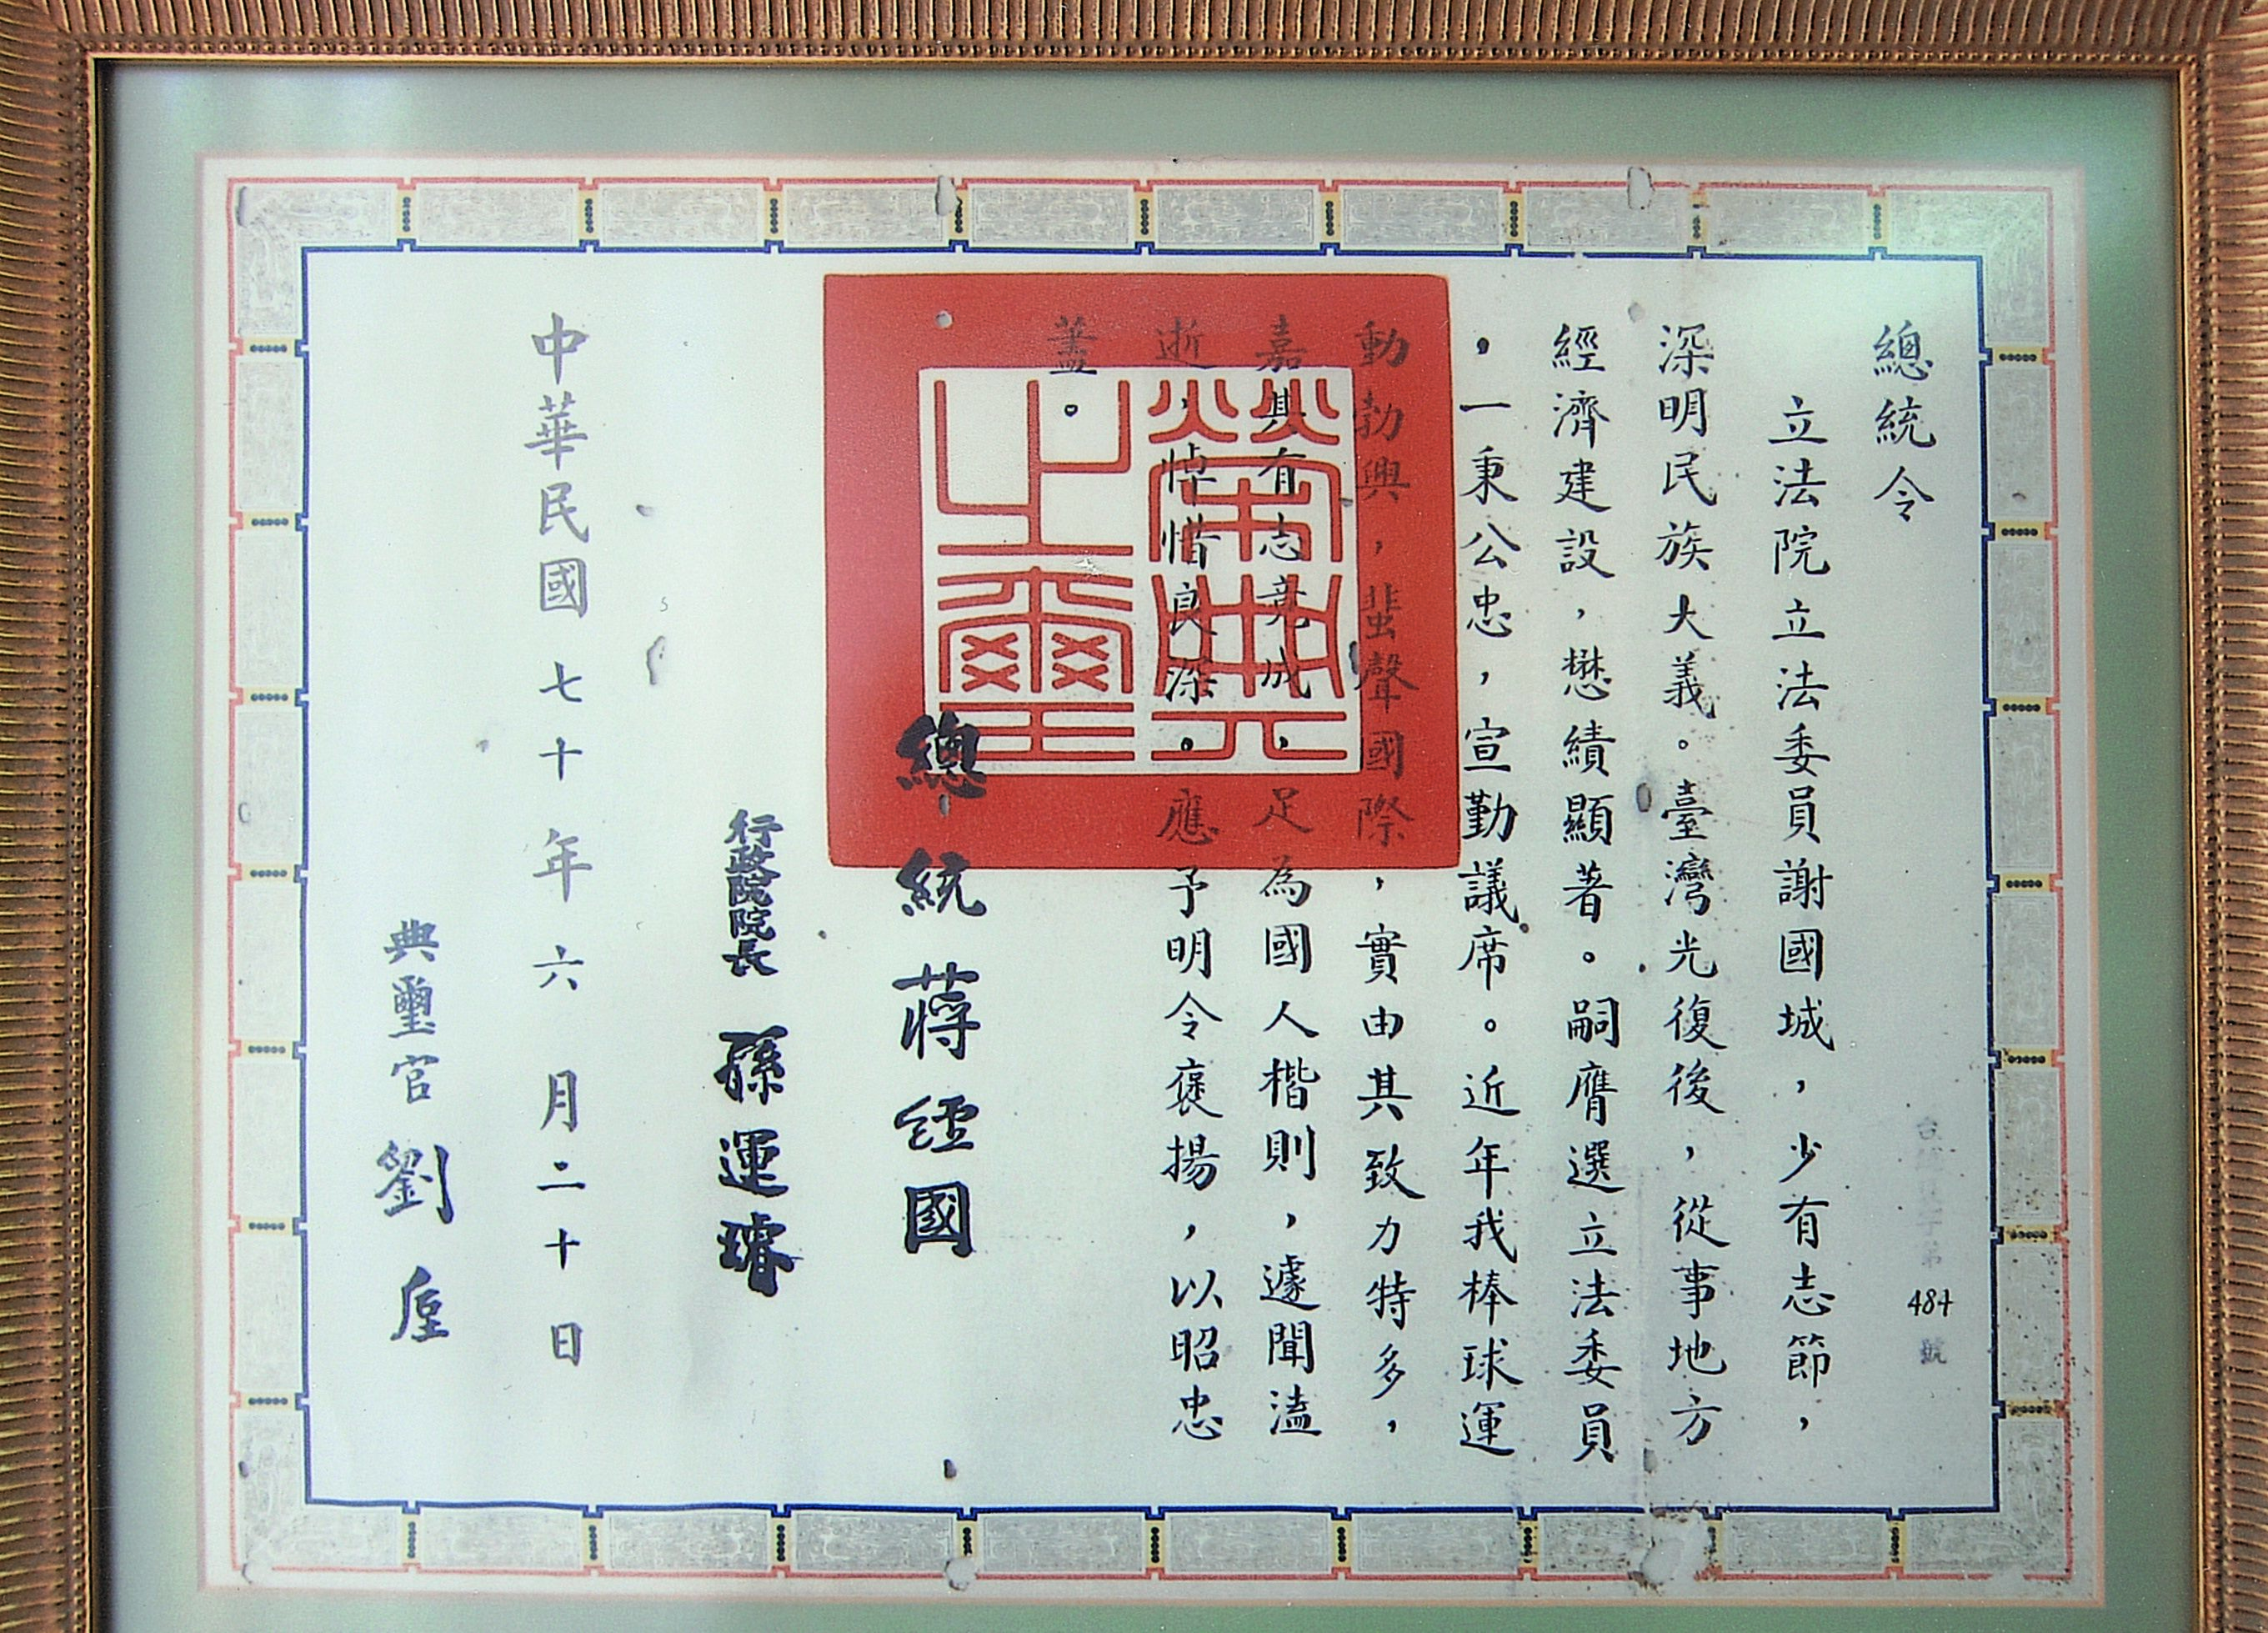 總統令
立法院立法委員謝國城，少有志節，
深明民族大義。臺灣光復後，從事地方
經濟建設，懋績顯著。嗣膺選立法委員
，一秉公忠，宣勤議席。近年我棒球運
動勃興，蜚聲國際，實由其致力特多，
嘉其有志竟成，足為國人楷則，遽聞溘
逝，悼惜良深。應予明令褒揚，以昭忠
藎。
總統 蔣經國
行政院院長 孫運璿
中華民國七十年六月二十日
典璽官 劉垕
484 號
榮典之璽